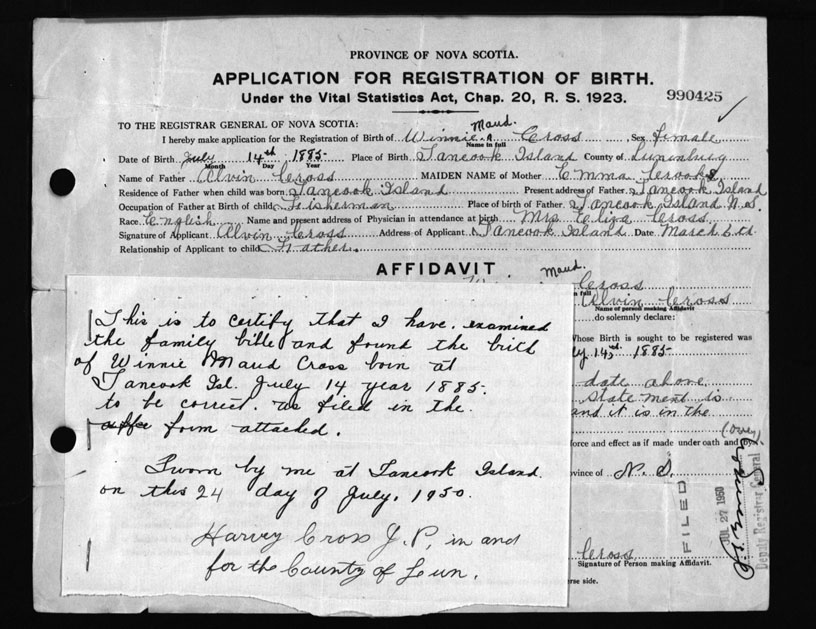 PROVINCE OF NOVA SCOTIA.
APPLICATION FOR REGISTRATION OF BIRTH.
Under the Vital Statistics Act, Chap. 20, R. S. 1923.
990425
TO THE REGISTRAR GENERAL OF NOVA SCOTIA:
Maud.
I hereby make application for the Registration of Birth of Winnie Cross Sex female
Name in full
Date of Birth July 14th 1885 Place of Birth Tancook Island County of Lunenburg
Month Day Year
Name of Father Alvin Cross MAIDEN NAME of Mother Emma
Residence of Father when child was born Tancook Island Present address of Father Tancook Island
Occupation of Father at Birth of child Fisherman Place of birth of Father Tancook Island N.S.
Race English Name and present address of Physician in attendance at birth Mrs Eliza Cross
Signature of Applicant Alvin Cross Address of Applicant Tancook Island Date March
Relationship of Applicant to child Father.
AFFIDAVIT
Maud.
Cross
in full
Alvin Cross
Name of person making Affidavit
do solemnly declare:
Whose Birth is sought to be registered was
1885
date above
statement is
and it is in the
(over)
force and effect as if made under oath and by
vince of N. S.
FILED
JUL 27 1950
Deputy Registrar General
Cross
Signature of Person making Affidavit.
rse side.
This is to certify that I have examined
the family bible and found the birth
of Winnie Maud Cross born at
Tancook Isl. July 14 year 1885.
to be correct. as filed in the
form attached.
Sworn by me at Tancook Island
on this 24 day of July. 1950.
Harvey Cross J.P. in and
for the County of Lun.